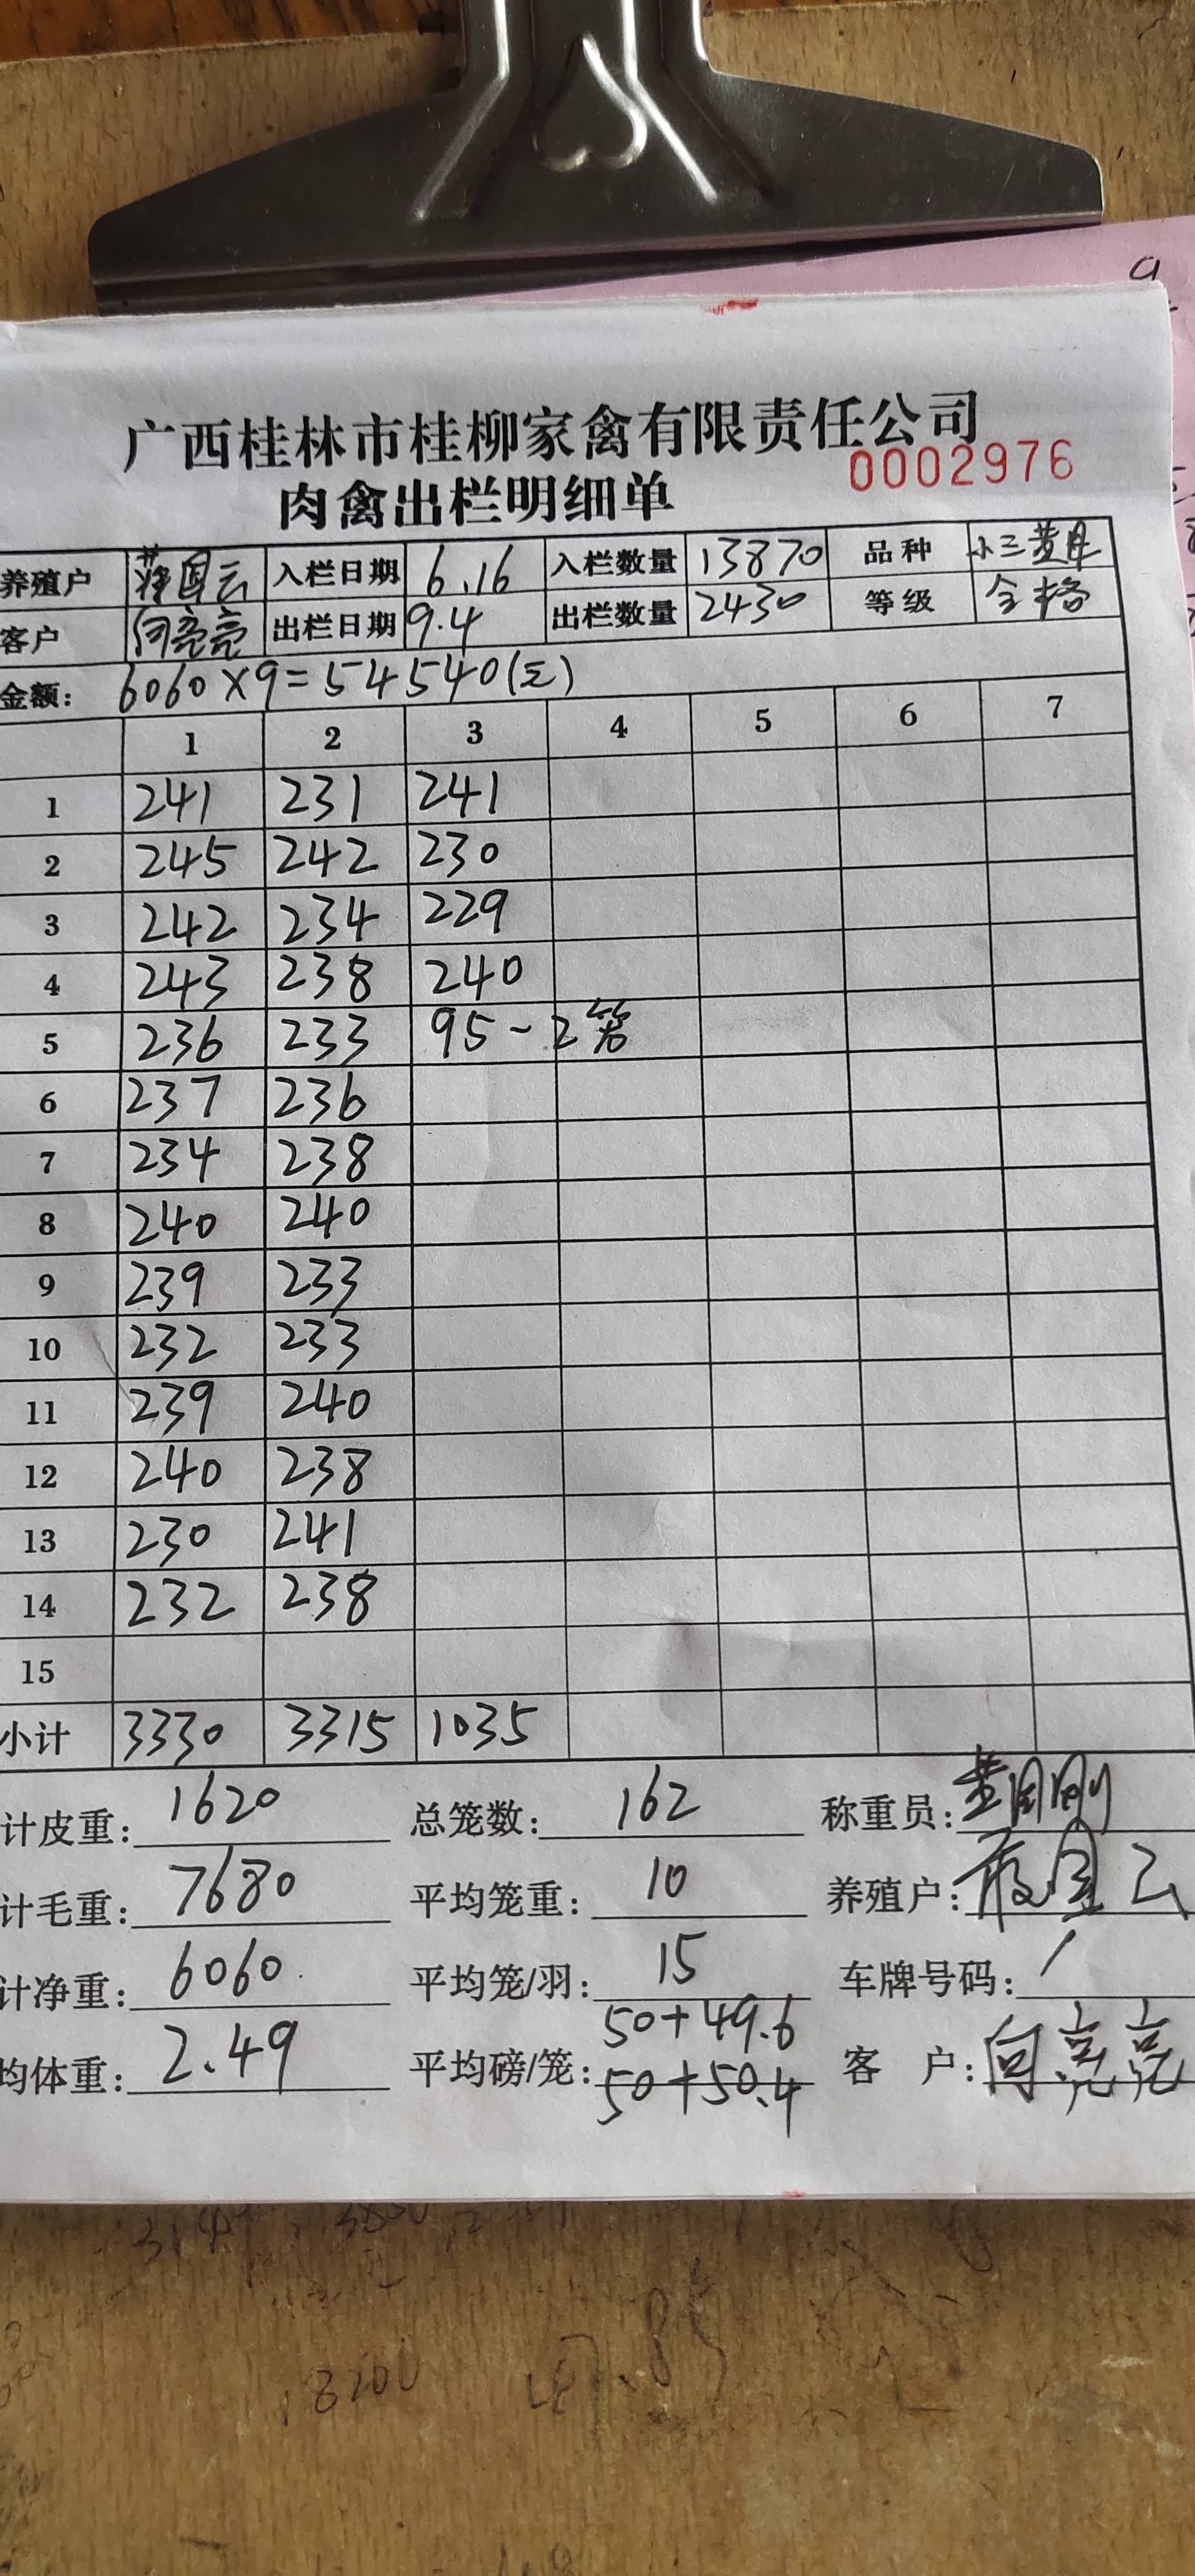 广西桂林市桂柳家禽有限责任公司
0002976
肉禽出栏明细单
养殖户 国云 入栏日期 6.16 入栏数量 13870 品种 小三黄
客户 向亮亮 出栏日期 9.4 出栏数量 2430 等级 合格
金额: 6060×9=54540(元)
1 2 3 4 5 6 7
1 241 231 241
2 245 242 230
3 242 234 229
4 243 238 240
5 236 233 95-2笼
6 237 236
7 234 238
8 240 240
9 239 233
10 232 233
11 239 240
12 240 238
13 230 241
14 232 238
15
小计 3330 3315 1035
计皮重: 1620 总笼数: 162 称重员:
计毛重: 7680 平均笼重: 10 养殖户:
计净重: 6060 平均笼/羽: 15 车牌号码: /
50+49.6
均体重: 2.49 平均磅/笼: 50+50.4 客户: 向亮亮